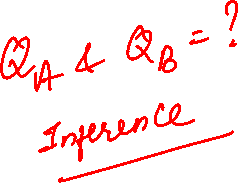 Q_A & Q_B = ?
Inference